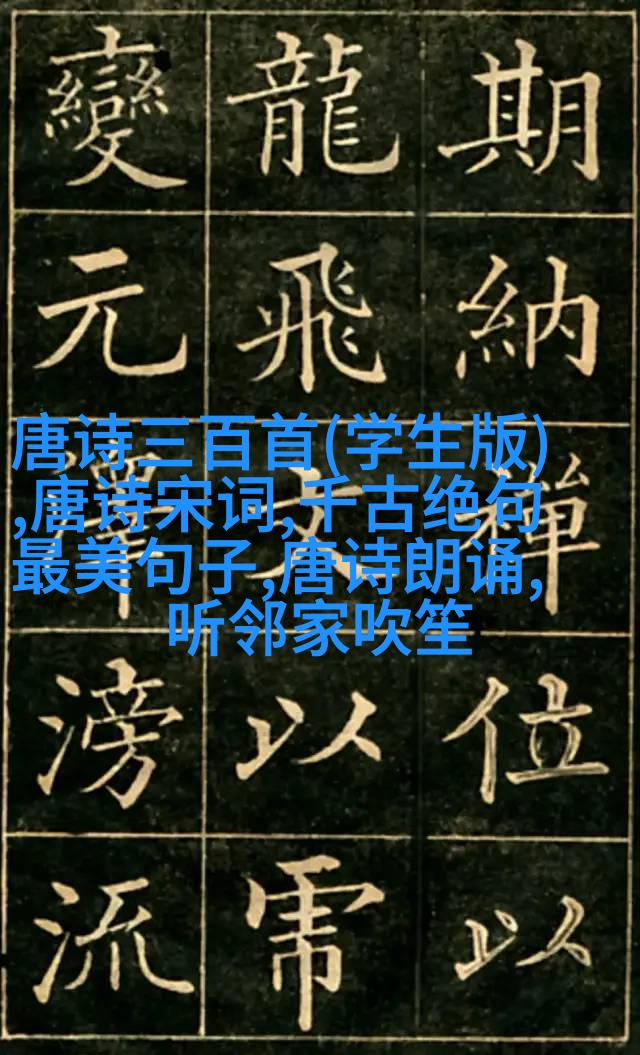 期納禪位以
龍飛文以虎
變元澤滂流
唐诗三百首(学生版)
,唐诗宋词,千古绝句
最美句子,唐诗朗诵,
听邻家吹笙